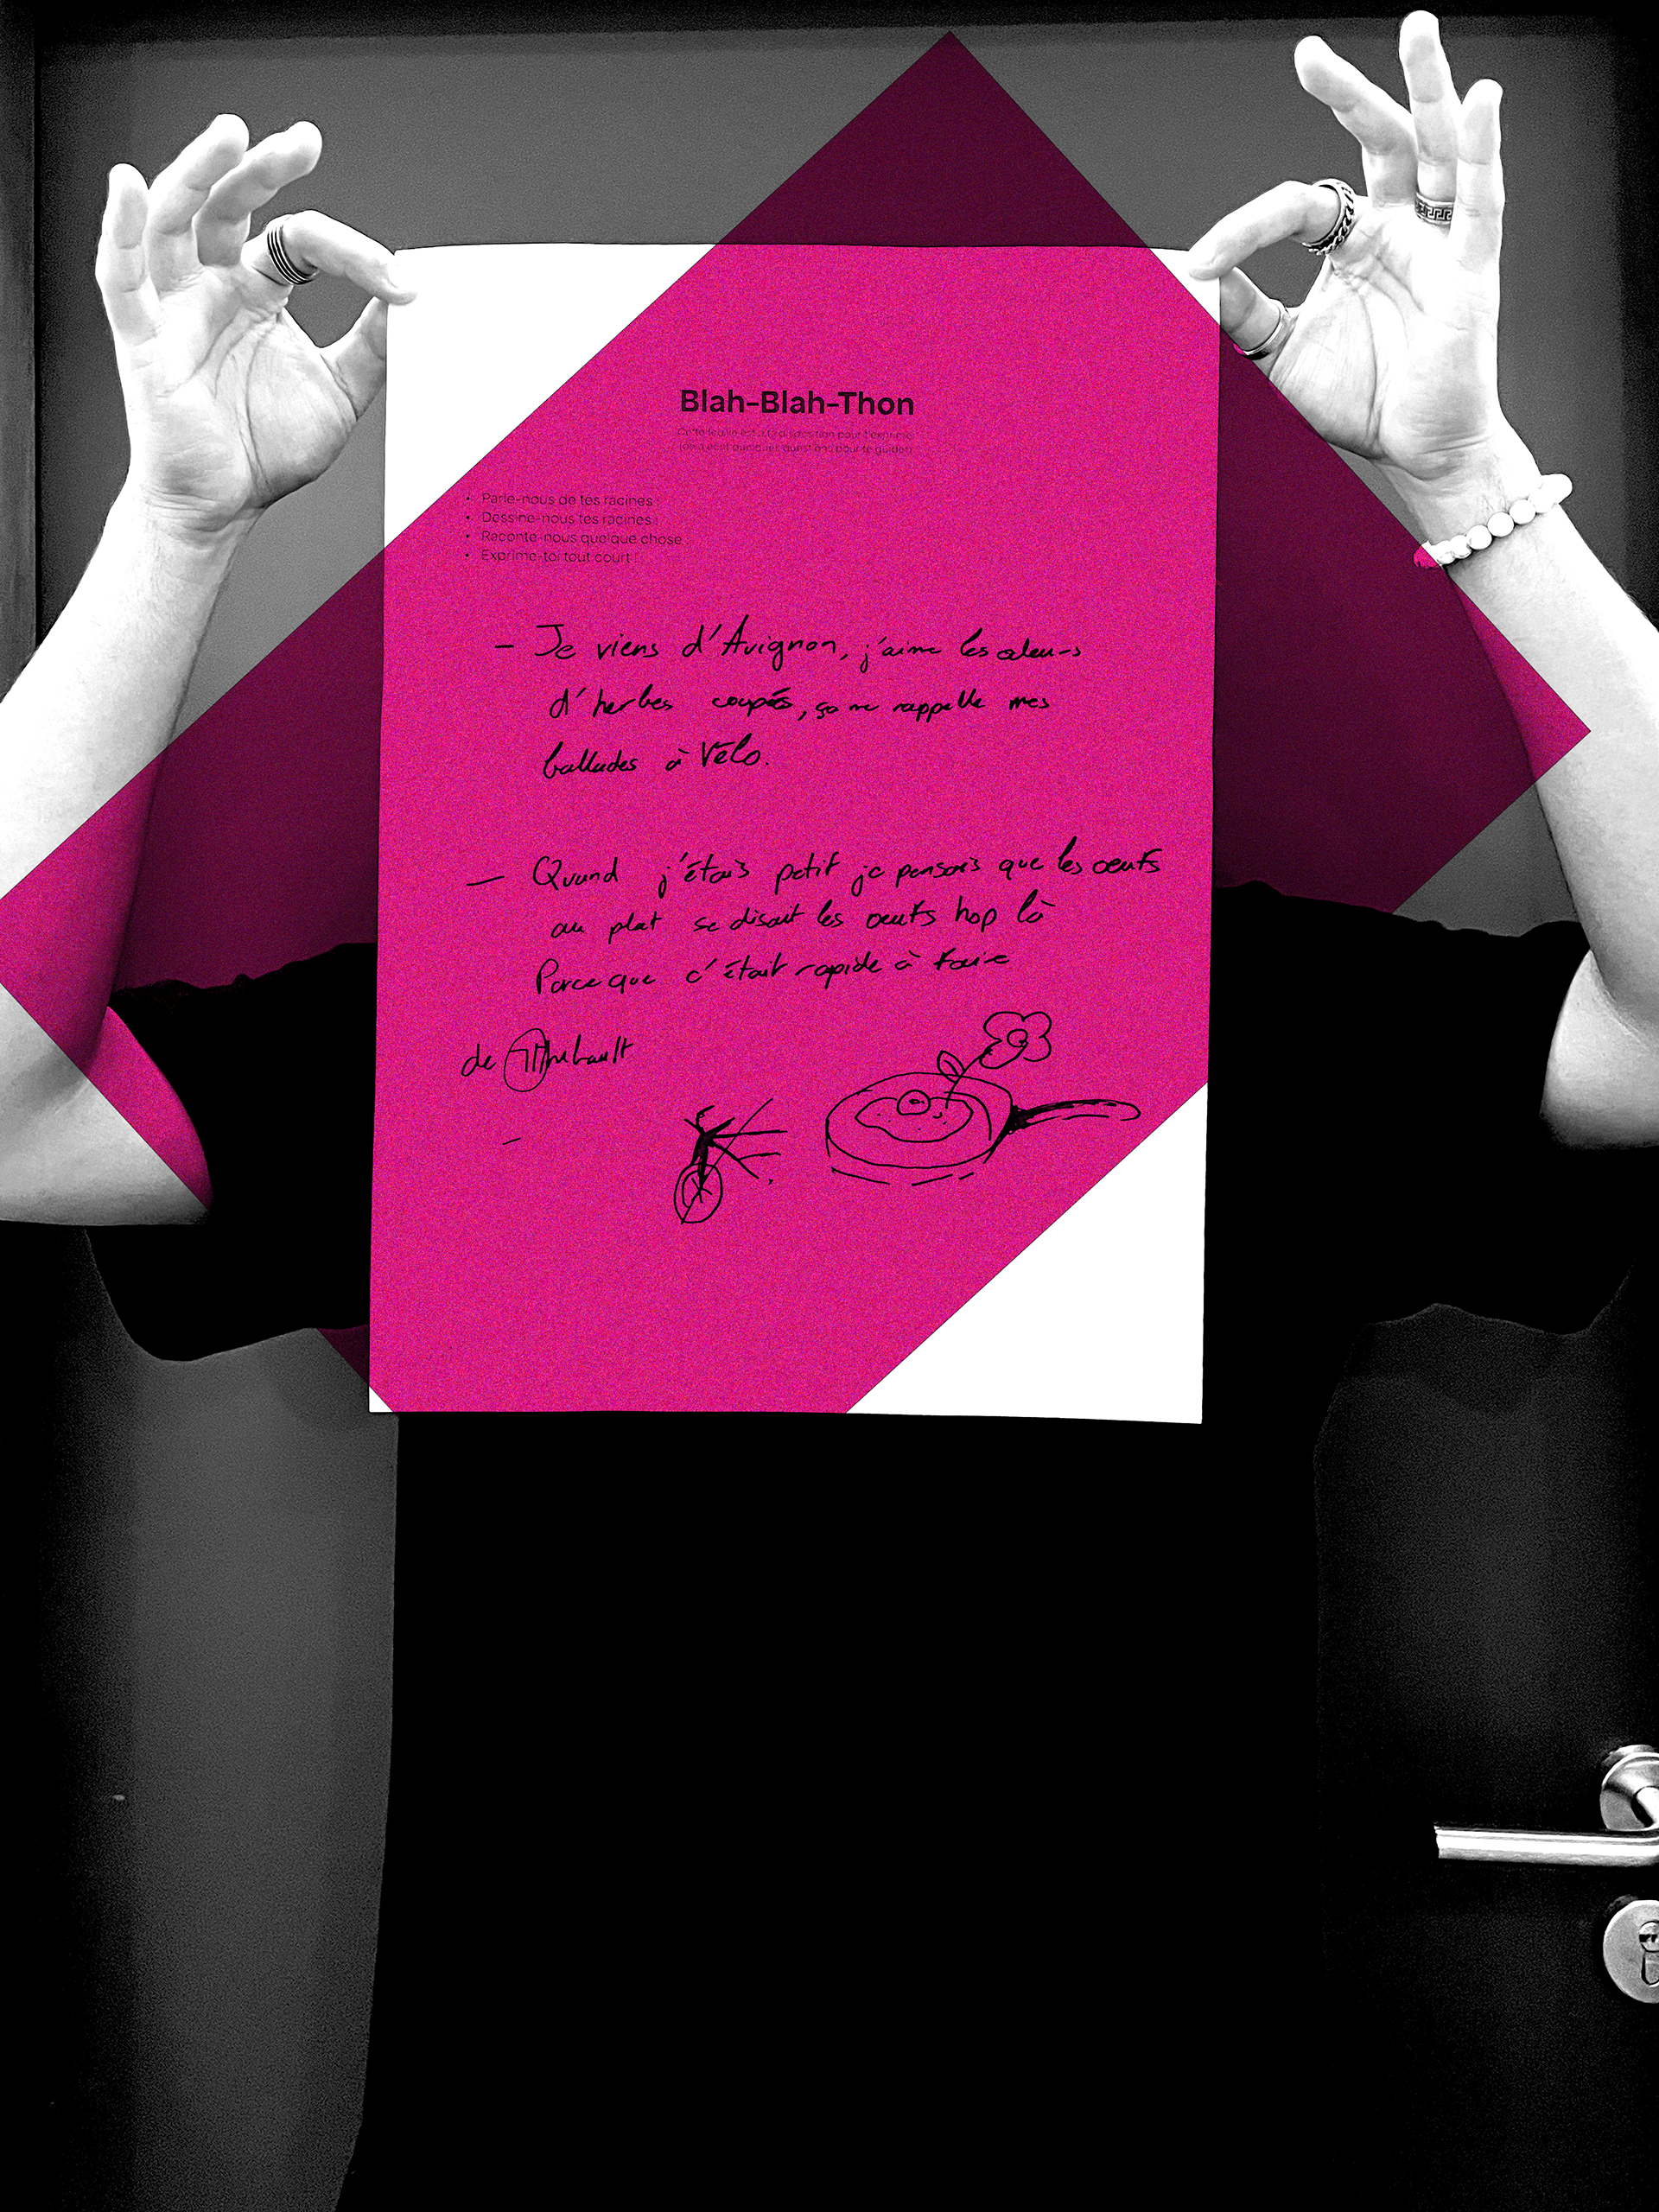 Blah-Blah-Thon
Cette feuille est à ta disposition pour t'exprimer
quelques questions pour te guider
• Parle-nous de tes racines ;
• Dessine-nous tes racines ;
• Raconte-nous quelque chose ;
• Exprime-toi tout court !
— Je viens d'Avignon, j'aime les odeurs
d'herbes coupés, ça me rappelle mes
ballades à Vélo.
— Quand j'étais petit je pensais que les oeufs
au plat se disait les oeufs hop là
Parce que c'était rapide à faire
de Thibault